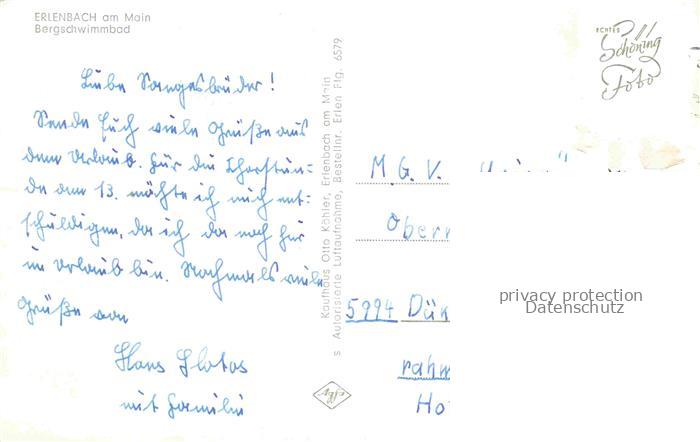 ERLENBACH am Main
Bergschwimmbad
ECHTES
Schöning
Foto
Liebe Sangesbrüder!
Sende Euch viele Grüße aus
dem Urlaub. Für die Chorstun=
de am 13. möchte ich mich ent=
schuldigen, da ich da noch hier
im Urlaub bin. Nochmals viele
Grüße von
Hans
mit Familie
Kaufhaus Otto Köhler, Erlenbach am Main
S Autorisierte Luftaufnahme, Bestellnr. Erlen Flg. 6579
Agfa
M.G.V.
Ober
5994 Dün
rahm
Ho
privacy protection
Datenschutz